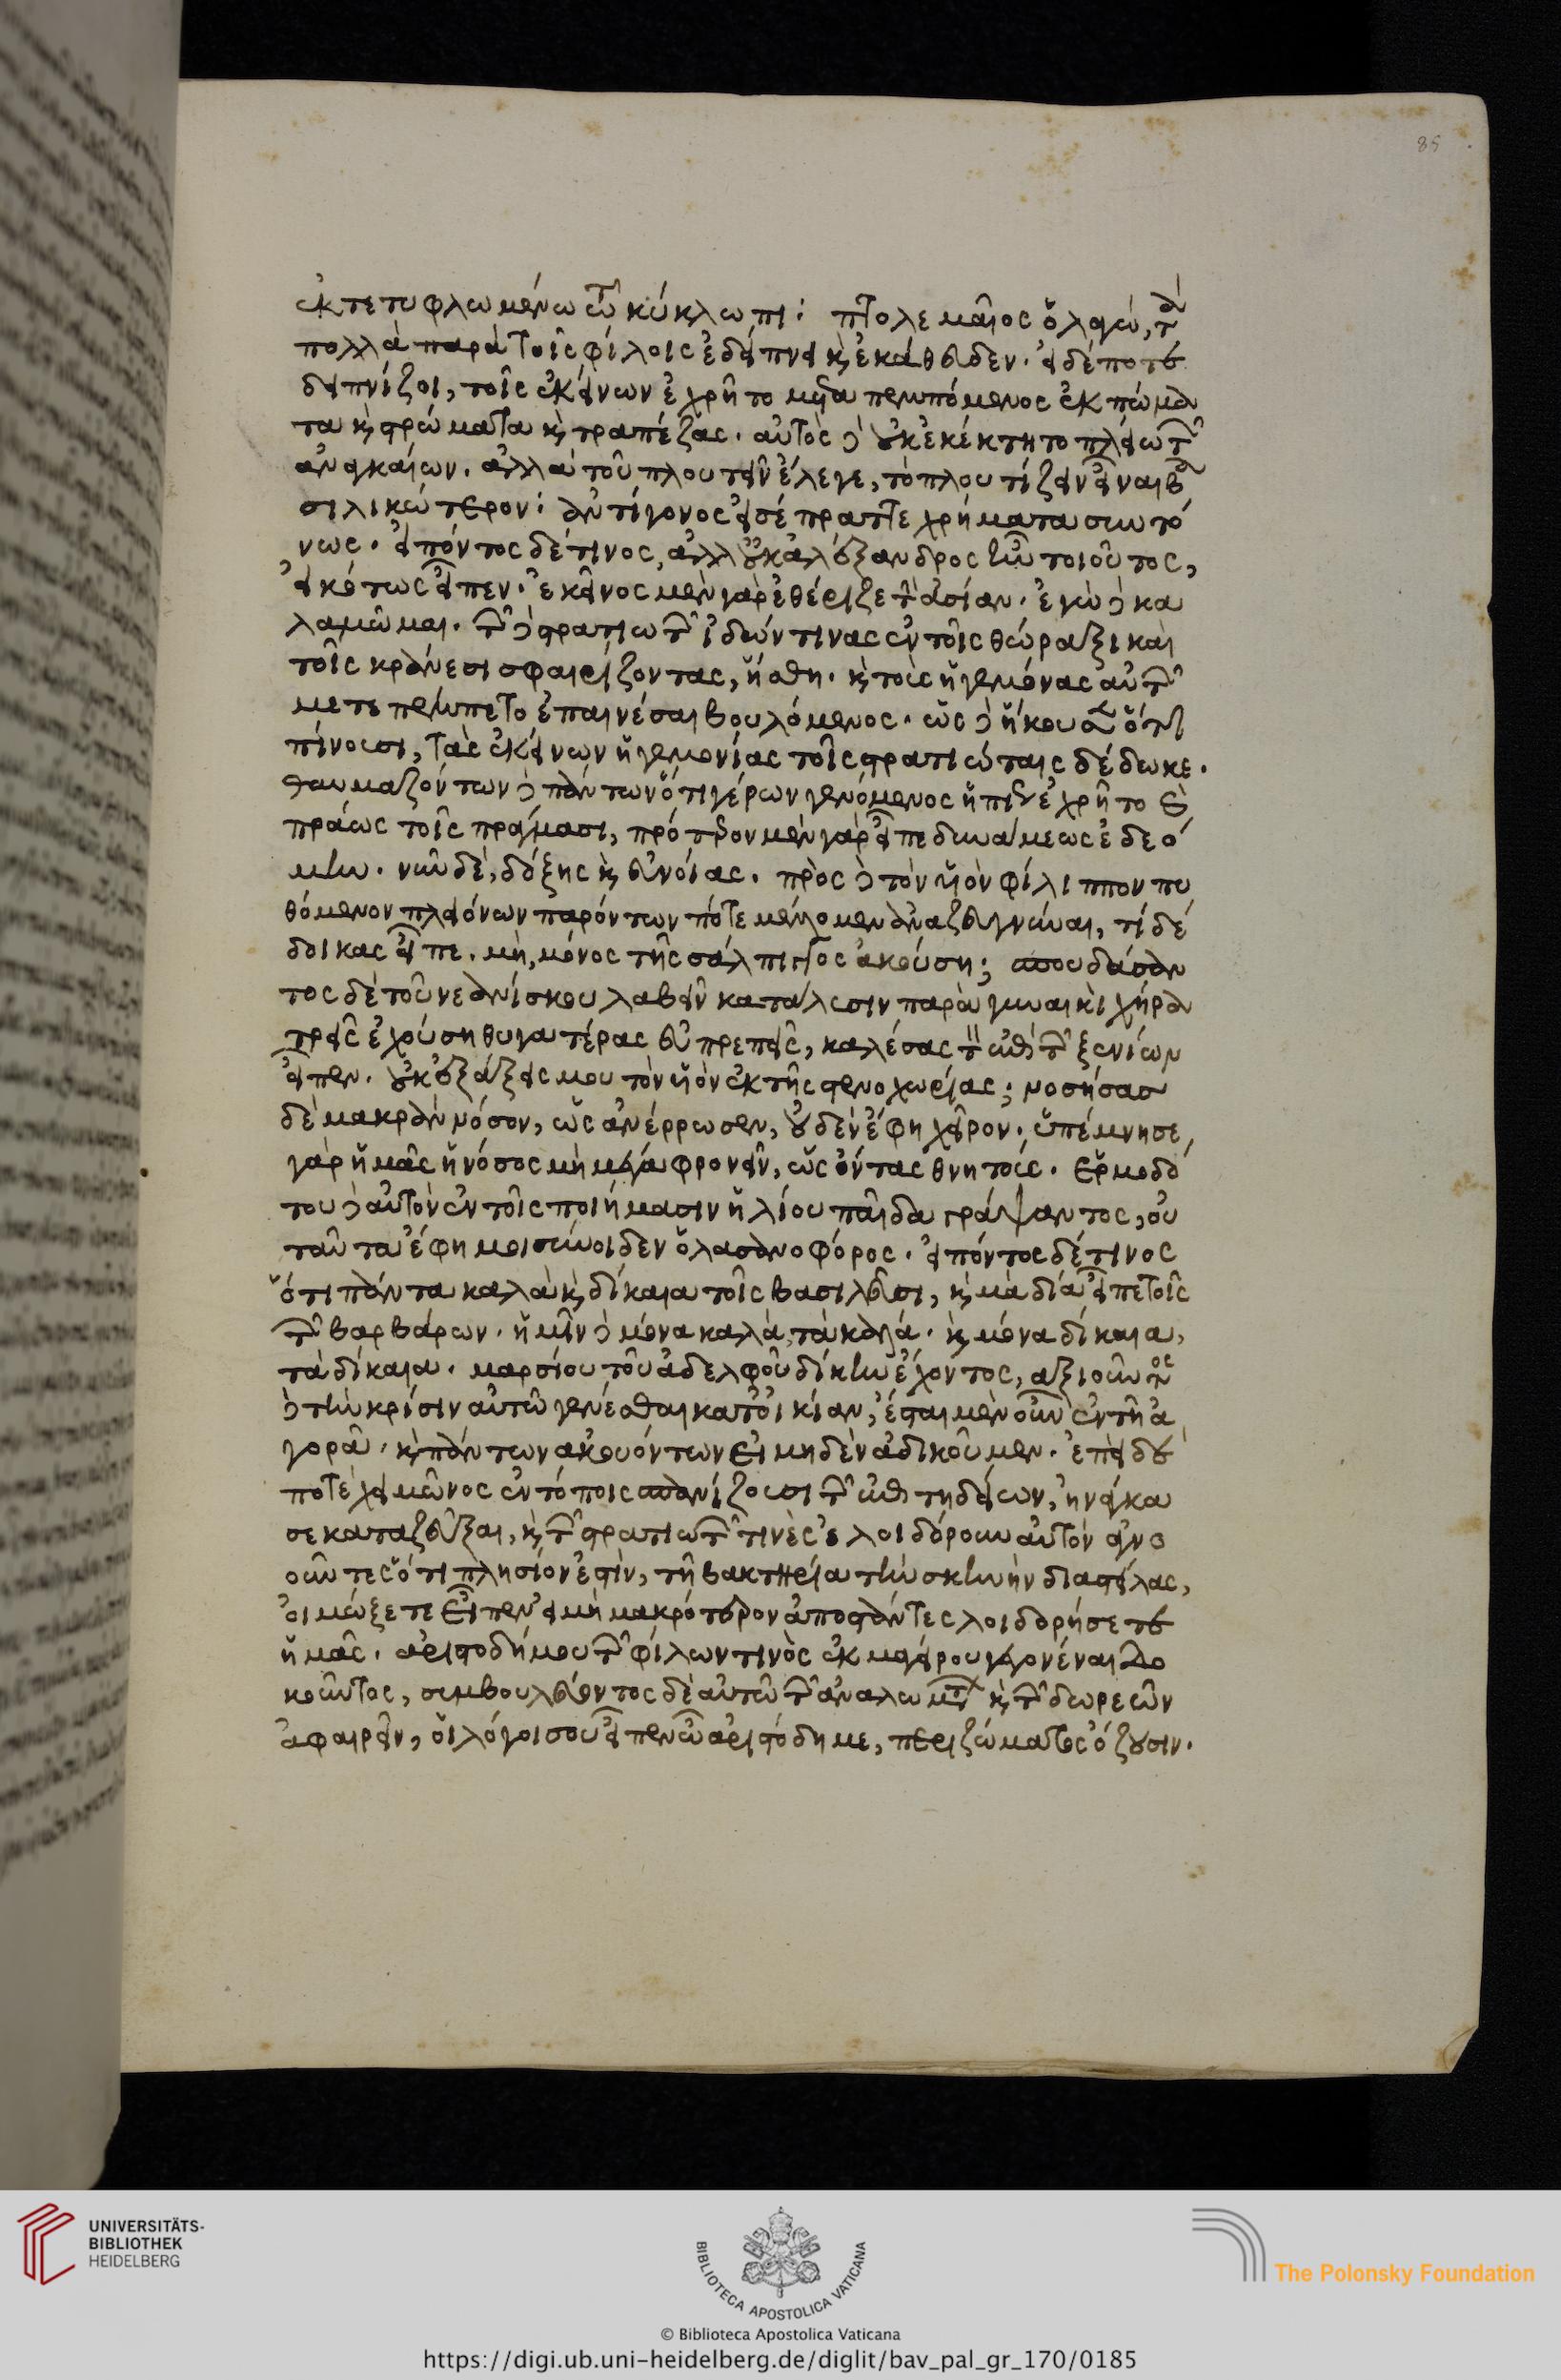 85
ἐκτετυφλωμένω τῶ κύκλωπι· πτολεμαῖος ὁ λαγώ, τὰ
πολλὰ παρὰ τοῖς φίλοις ἐδείπνει κ ἐκάθευδεν. εἰ δέποτε
δειπνίζοι, τοῖς ἐκείνων ἐχρῆτο μεταπεμπόμενος ἐκπώμα
τα κ στρώματα κ τραπέζας. αὐτὸς δὲ οὐκ ἐκέκτητο πλείω τῶν
ἀναγκαίων. ἀλλὰ τοῦ πλουτεῖν ἔλεγε, τὸ πλουτίζειν εἶναι βα
σιλικώτερον· ἀντίγονος εἰσέπραττε χρήματα συντό
νως. εἰπόντος δέ τινος, ἀλλ οὐκ ἀλέξανδρος ἦν τοιοῦτος,
εἰκότως εἶπεν. ἐκεῖνος μὲν γὰρ ἐθέριζε τὴν ἀσίαν. ἐγὼ δὲ κα
λαμῶμαι. τῶν δὲ στρατιωτῶν ἰδών τινας ἐν τοῖς θώραξι καὶ
τοῖς κράνεσι σφαιρίζοντας, ἥσθη. κ τοὺς ἡγεμόνας αὐτῶν
μετεπέμπετο ἐπαινέσαι βουλόμενος. ὡς δὲ ἤκουσεν ὅτι
πίνουσι, τὰς ἐκείνων ἡγεμονίας τοῖς στρατιώταις δέδωκε.
θαυμαζόντων δὲ πάντων ὅτι γέρων γενόμενος ἠπίως ἐχρῆτο κ
πράως τοῖς πράγμασι, πρότερον μὲν γὰρ εἶπε δυνάμεως ἐδεό
μην. νῦν δὲ, δόξης κ εὐνοίας. πρὸς δὲ τὸν ὑὸν φίλιππον πυ
θόμενον πλειόνων παρόντων πότε μέλλομεν ἀναζευγνύναι, τί δέ
δοικας εἶπε. μὴ, μόνος τῆς σάλπιγγος ἀκούση; σπουδάσαν
τος δὲ τοῦ νεανίσκου λαβεῖν κατάλυσιν παρὰ γυναικὶ χήρα
τρεῖς ἐχούση θυγατέρας εὐπρεπεῖς, καλέσας τὸν ἐπὶ τῶν ξενίων
εἶπεν. οὐκ ἐξάξεις μου τὸν ὑὸν ἐκ τῆς στενοχωρίας; νοσήσας
δὲ μακρὰν νόσον, ὡς ἀνέρρωσεν, οὐδὲν ἔφη χεῖρον. ὑπέμνησε
γὰρ ἡμᾶς ἡ νόσος μὴ μέγα φρονεῖν, ὡς ὄντας θνητούς. ἑρμοδό
του δὲ αὐτὸν ἐν τοῖς ποιήμασιν ἡλίου παῖδα γράψαντος, οὐ
ταῦτα ἔφη μοι σύνοιδεν ὁ λασανοφόρος. εἰπόντος δέ τινος
ὅτι πάντα καλὰ κ δίκαια τοῖς βασιλεῦσι, κ μὰ δία εἶπε τοῖς
τῶν βαρβάρων. ἡμῖν δὲ μόνα καλὰ, τὰ καλά. κ μόνα δίκαια,
τὰ δίκαια. μαρσίου τοῦ ἀδελφοῦ δίκην ἔχοντος, ἀξιοῦντος
δὲ τὴν κρίσιν αὐτῶ γενέσθαι κατ οἰκίαν, ἔσται μὲν οὖν ἐν τῆ ἀ
γορᾶ. κ πάντων ἀκουόντων εἰ μηδὲν ἀδικοῦμεν. ἐπεὶ δέ
ποτε χειμῶνος ἐν τόποις σπανίζουσι τῶν ἐπιτηδείων, ἠνάγκα
σε καταζεῦξαι, κ τῶν στρατιωτῶν τινὲς ἐλοιδόρουν αὐτὸν ἀγνο
οῦντες ὅτι πλησίον ἐστὶν, τῆ βακτηρία τὴν σκηνὴν διαστείλας,
οἰμώξετε εἶπεν εἰ μὴ μακρότερον ἀποστάντες λοιδορήσετε
ἡμᾶς. ἀριστοδήμου τῶν φίλων τινὸς ἐκ μαγείρου γεγονέναι δο
κοῦντος, συμβουλεύοντος δὲ αὐτῶ τῶν ἀναλωμάτων κ τῶν δωρεῶν
ἀφαιρεῖν, οἱ λόγοι σου εἶπεν ὦ ἀριστόδημε, περιζώματος ὄζουσιν.
UNIVERSITÄTS-
BIBLIOTHEK
HEIDELBERG
BIBLIOTECA APOSTOLICA VATICANA
The Polonsky Foundation
© Biblioteca Apostolica Vaticana
https://digi.ub.uni-heidelberg.de/diglit/bav_pal_gr_170/0185